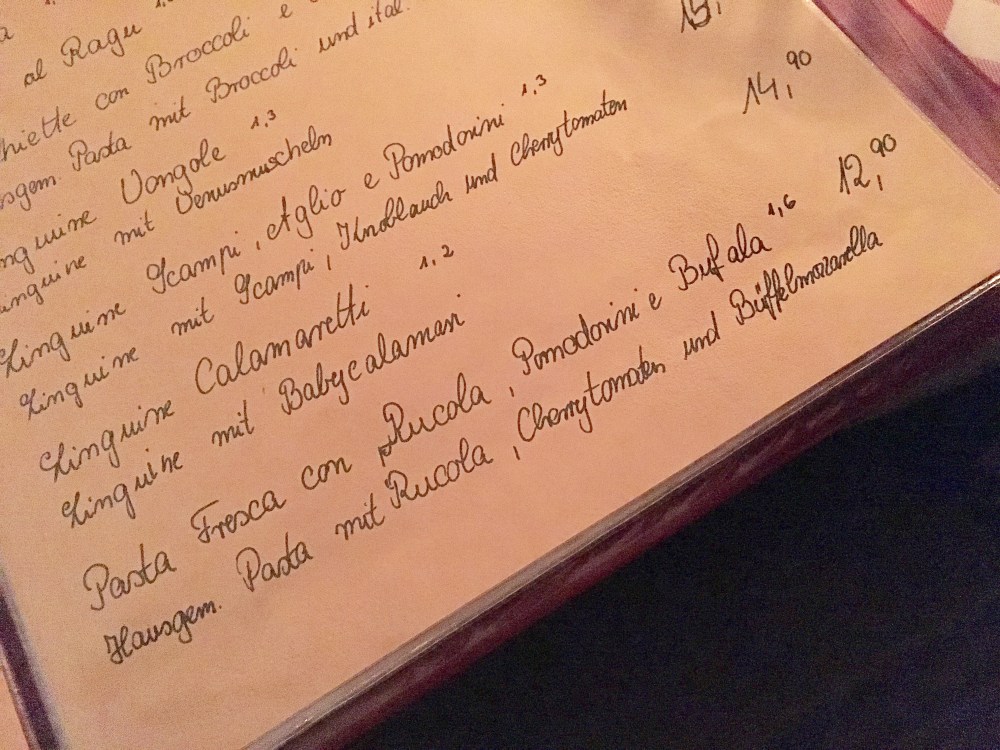 al Ragu
con Broccoli e
Pasta mit Broccoli und ital.
Vongole 1,3
mit Venusmuscheln
15,
Linguine Scampi, Aglio e Pomodorini 1,3
14,90
Linguine mit Scampi, Knoblauch und Cherrytomaten
Linguine Calamaretti 1,2
12,90
Linguine mit Babycalamari
Pasta Fresca con Rucola, Pomodorini e Bufala 1,6
Hausgem. Pasta mit Rucola, Cherrytomaten und Büffelmozzarella